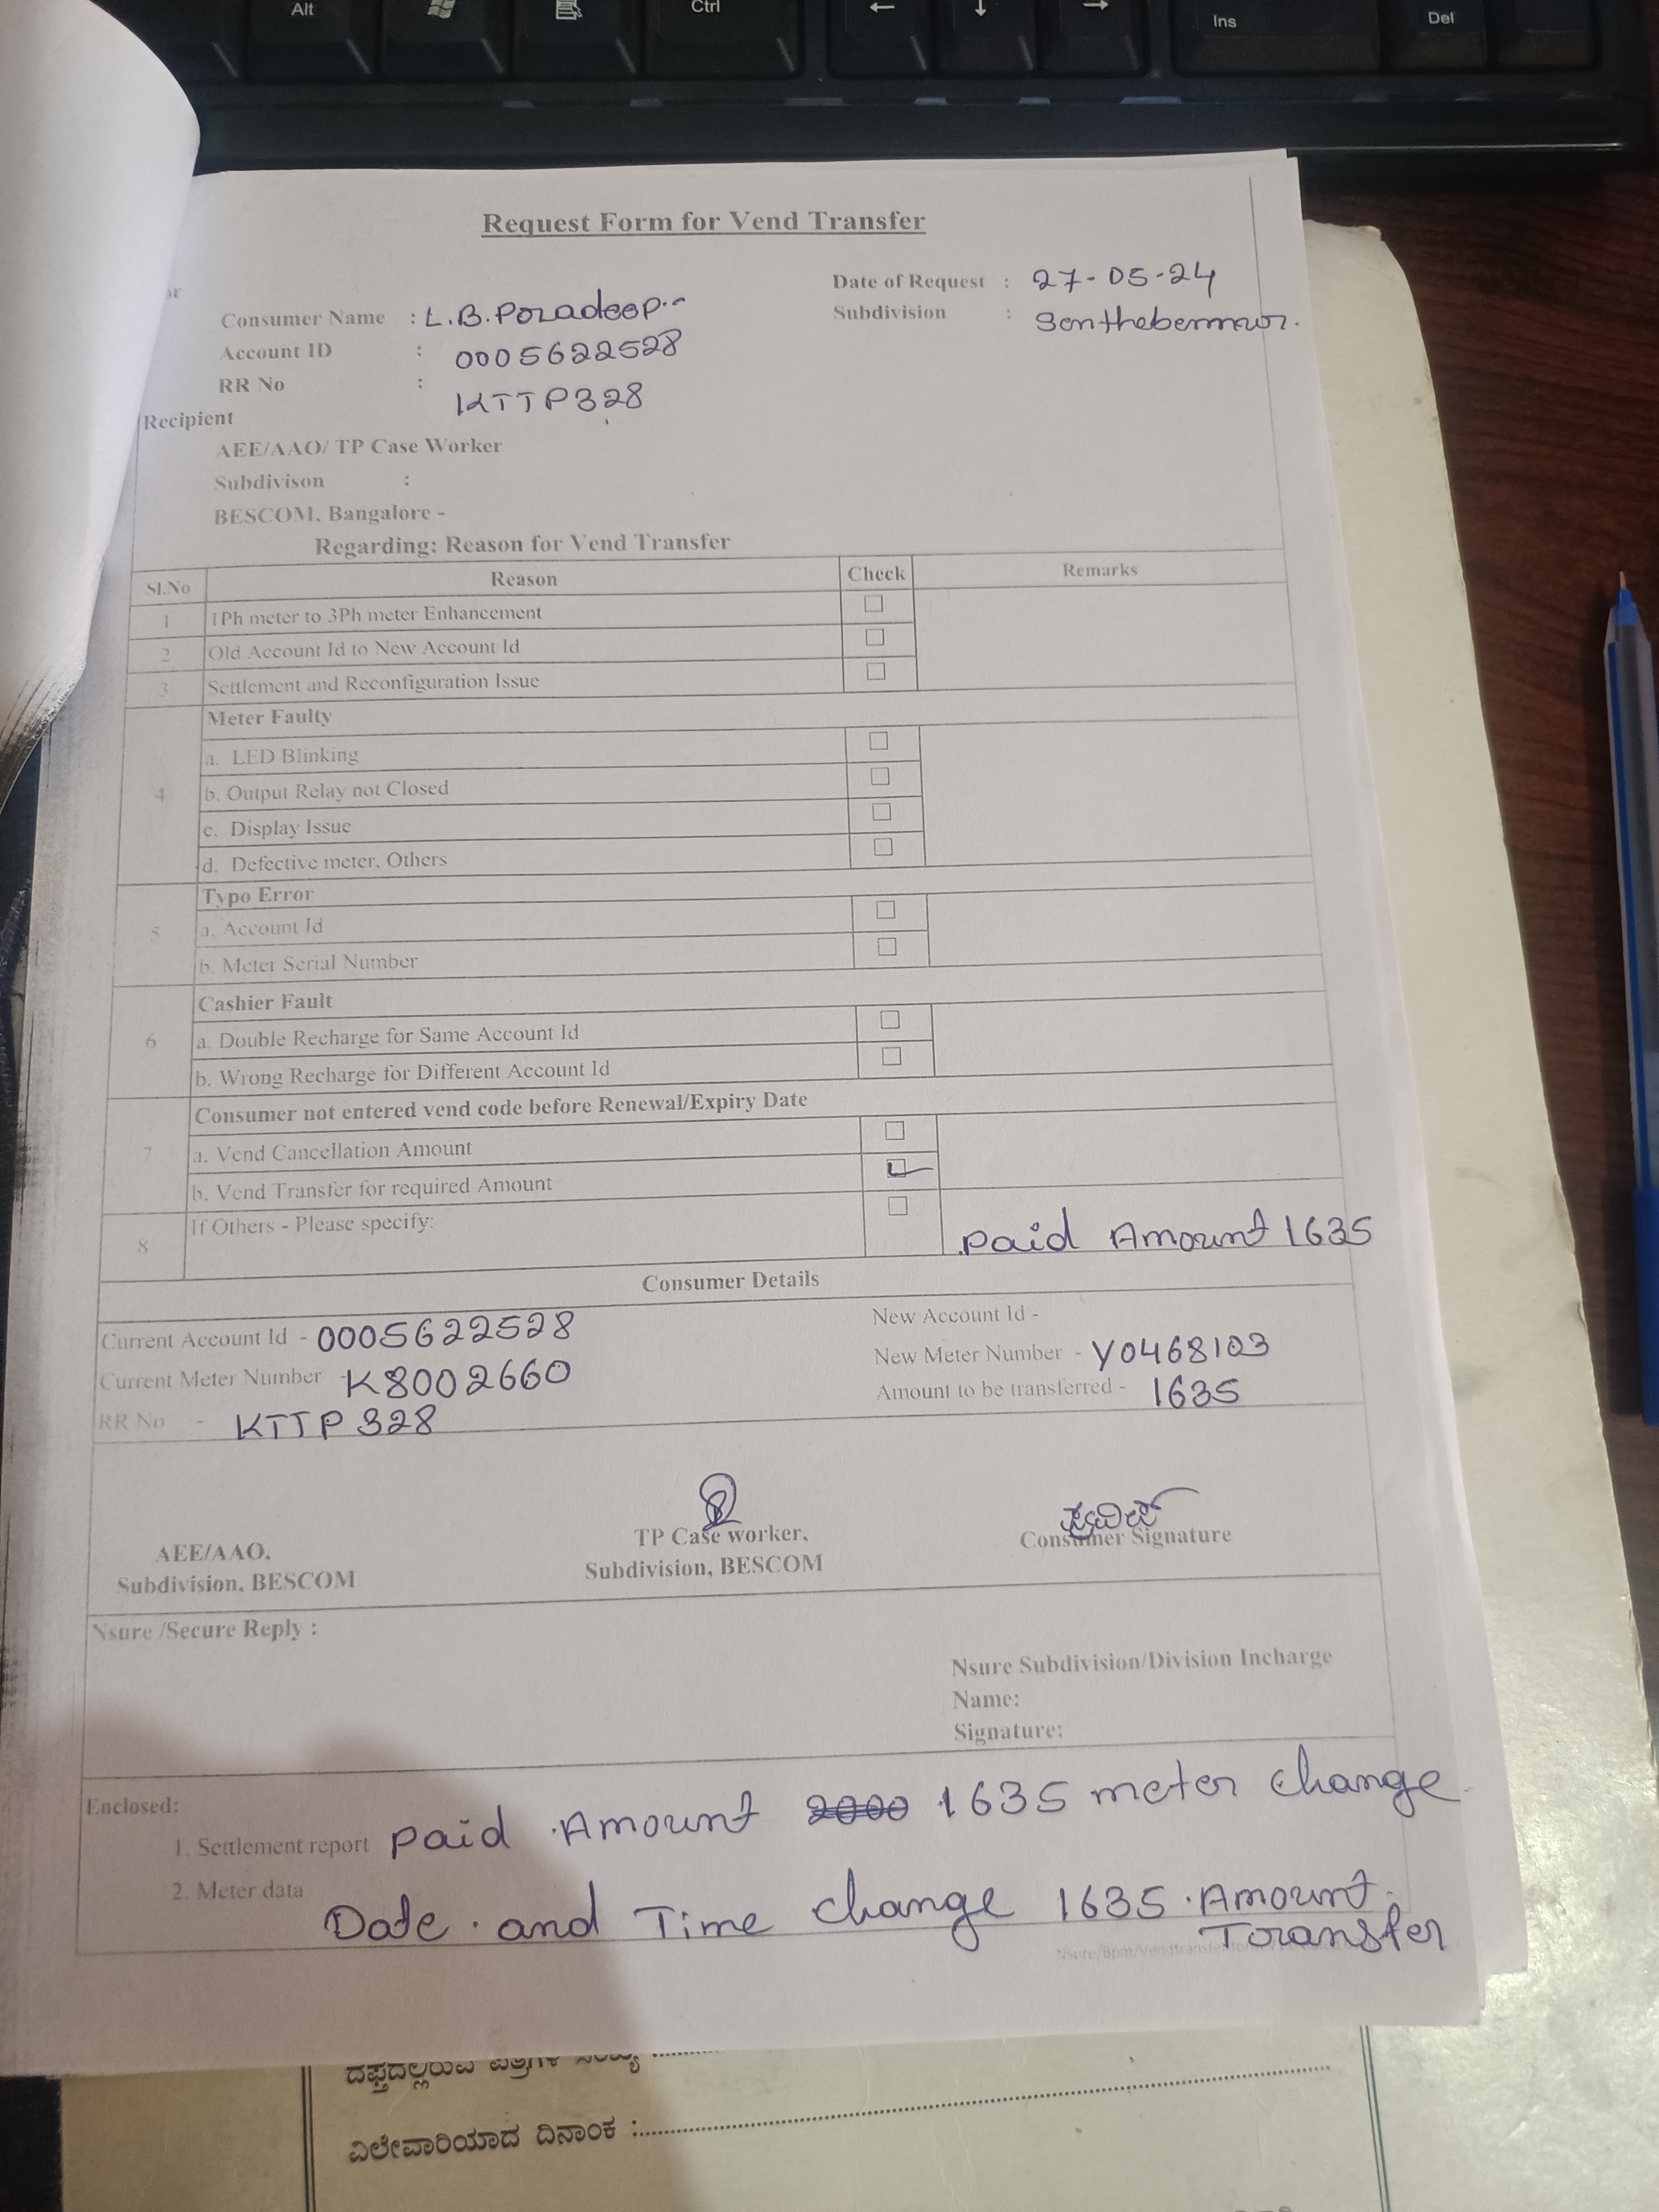 Alt
Ctrl
←
↓
→
Ins
Del
Request Form for Vend Transfer
Date of Request : 27-05-24
Consumer Name : L.B.Poradeep
Subdivision :
Account ID : 0005622528
RR No : KTTP328
Recipient
AEE/AAO/ TP Case Worker
Subdivison :
BESCOM, Bangalore -
Regarding: Reason for Vend Transfer
Sl.No Reason Check Remarks
1 1Ph meter to 3Ph meter Enhancement ☐
2 Old Account Id to New Account Id ☐
3 Settlement and Reconfiguration Issue ☐
Meter Faulty
a. LED Blinking ☐
4 b. Output Relay not Closed ☐
c. Display Issue ☐
d. Defective meter, Others ☐
Typo Error
5 a. Account Id ☐
b. Meter Serial Number ☐
Cashier Fault
6 a. Double Recharge for Same Account Id ☐
b. Wrong Recharge for Different Account Id ☐
Consumer not entered vend code before Renewal/Expiry Date
7 a. Vend Cancellation Amount ☐
b. Vend Transfer for required Amount ☑
8 If Others - Please specify: ☐ paid Amount 1635
Consumer Details
Current Account Id - 0005622528 New Account Id -
Current Meter Number - K8002660 New Meter Number - Y0468103
RR No - KTTP 328 Amount to be transferred - 1635
AEE/AAO,
Subdivision, BESCOM
TP Case worker,
Subdivision, BESCOM
Consumer Signature
Nsure /Secure Reply :
Nsure Subdivision/Division Incharge
Name:
Signature:
Enclosed:
1. Settlement report paid Amount 2000 1635 meter change
2. Meter data
Date and Time change 1635 Amount
Toransfer
ವಿಲೇವಾರಿಯಾದ ದಿನಾಂಕ :